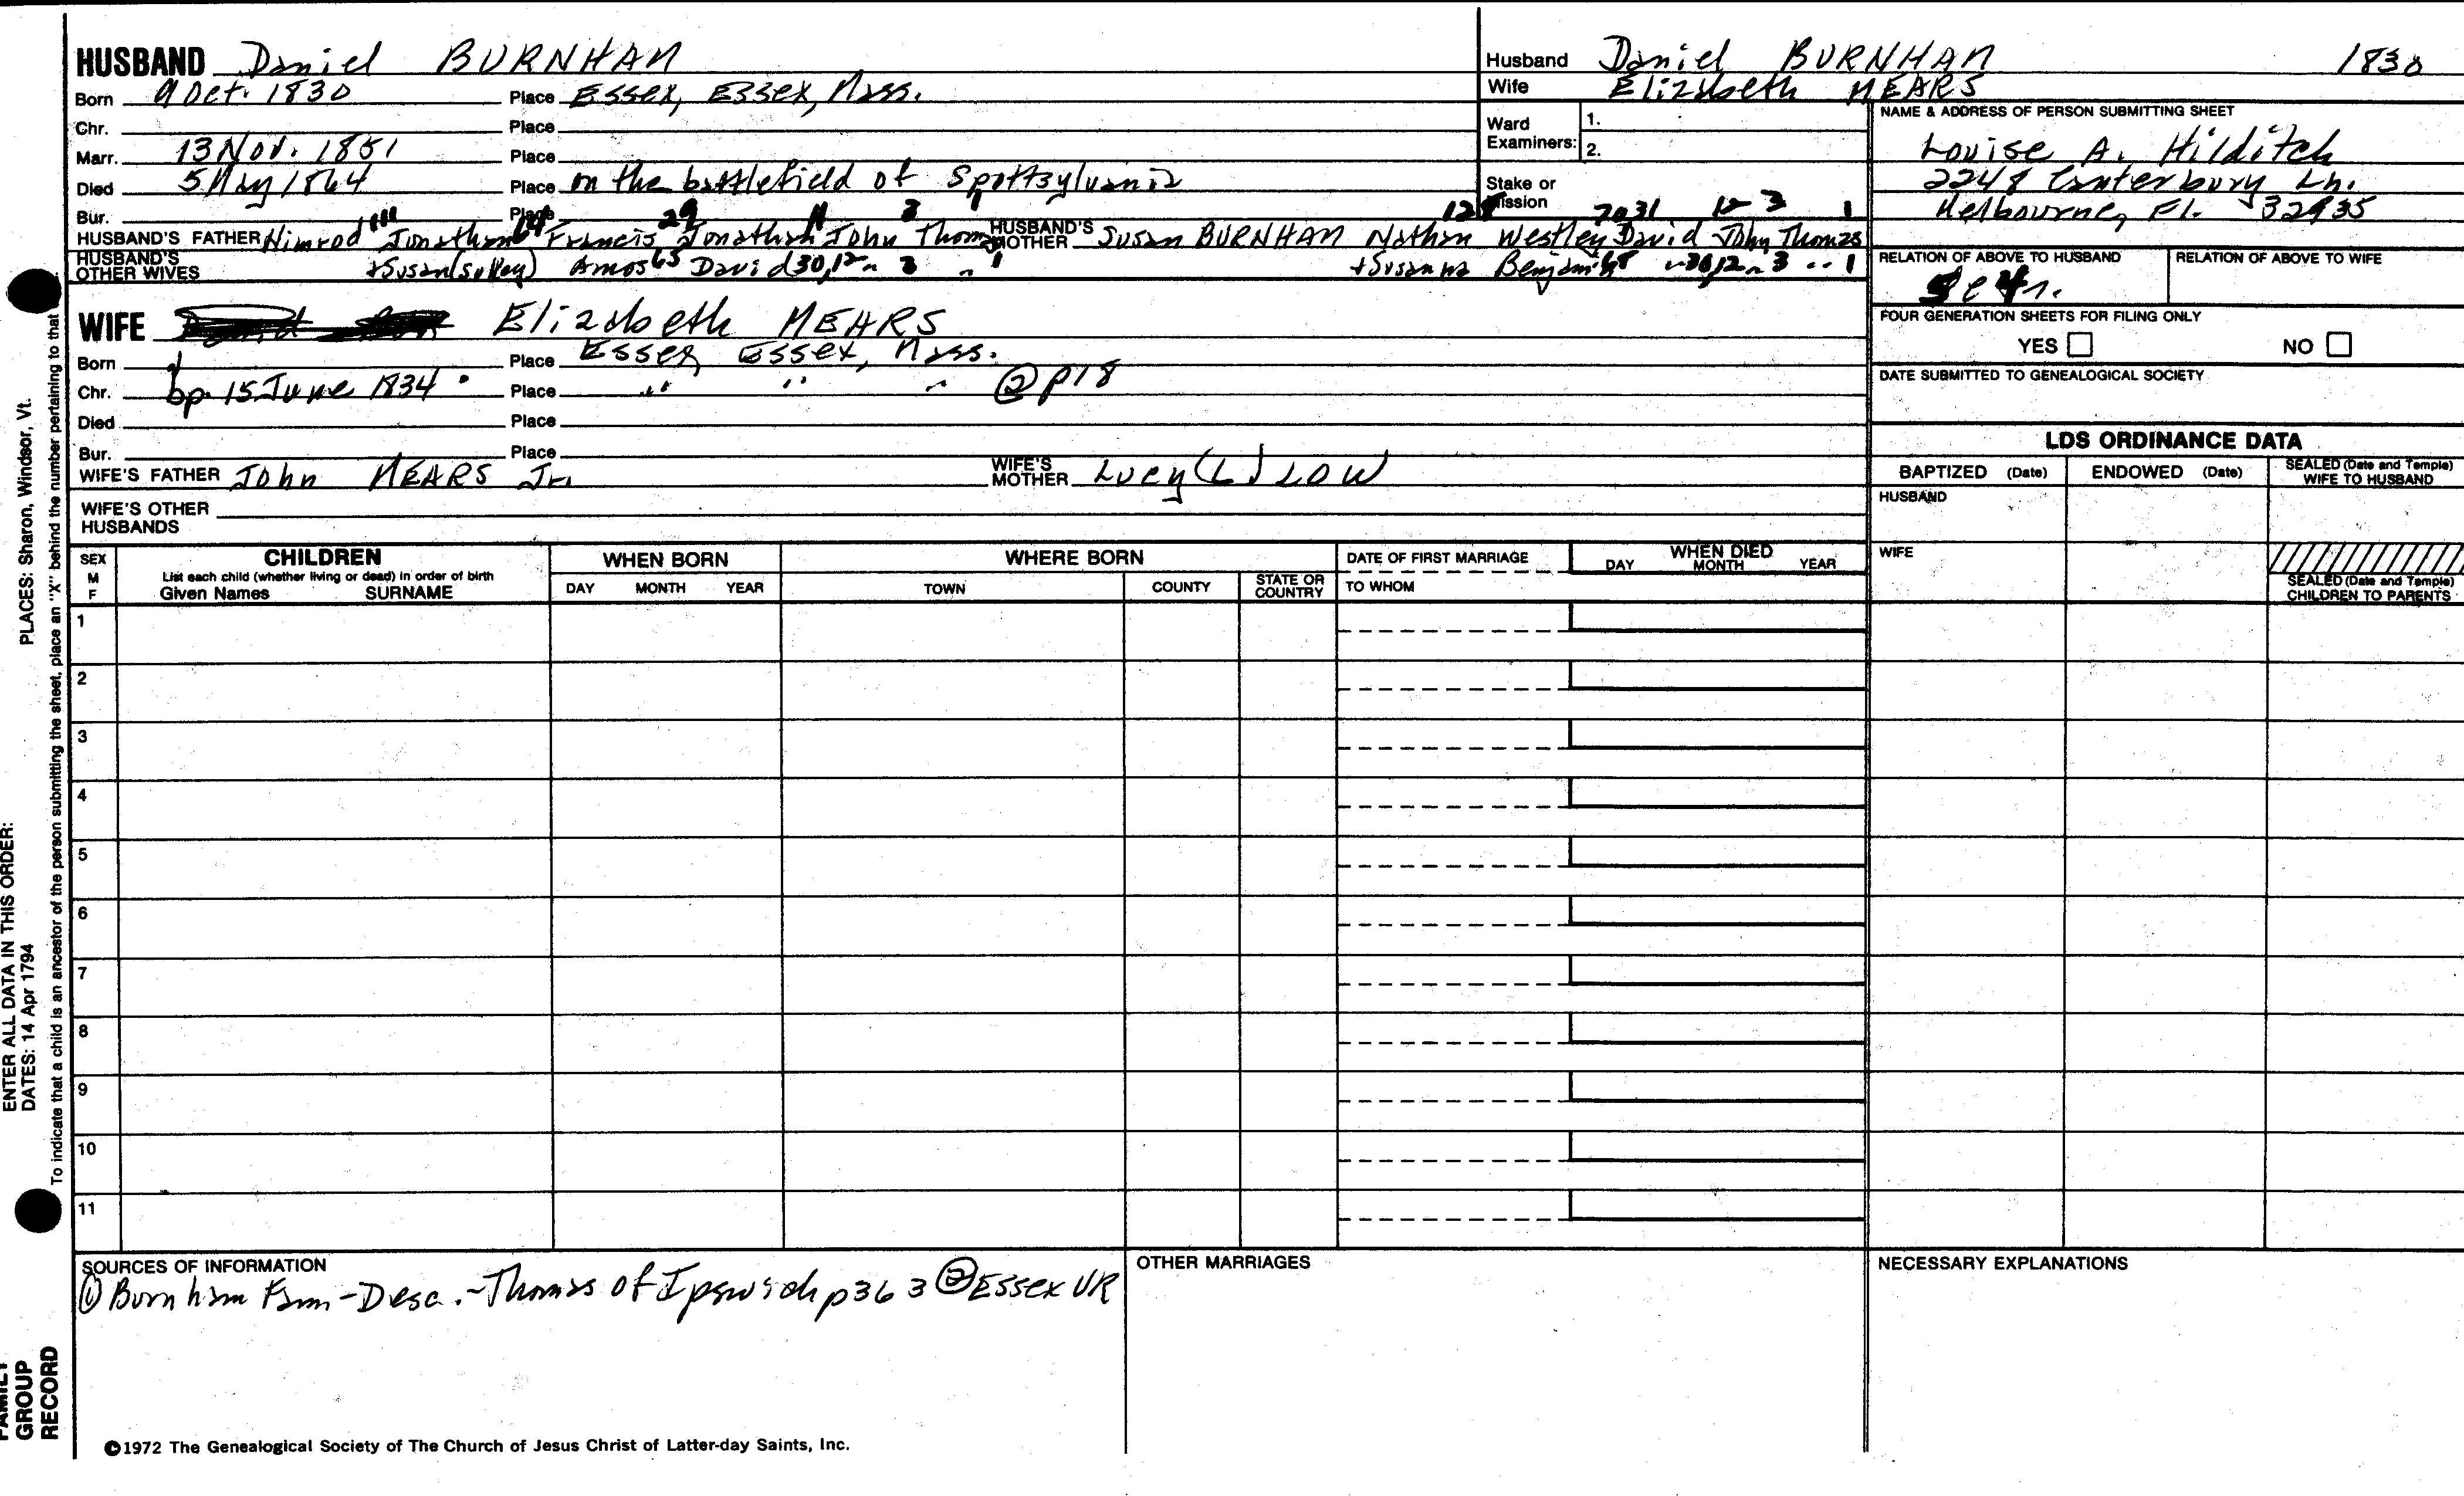 HUSBAND Daniel BURNHAM
Born 9 Oct. 1830 Place Essex, Essex, Mass.
Chr. Place
Marr. 13 Nov. 1851 Place
Died 5 May 1864 Place on the battlefield of Spottsylvania
Bur. Place
HUSBAND'S FATHER Nimrod Jonathan Francis, Jonathan John Thomas HUSBAND'S MOTHER Susan BURNHAM Nathan Westley David John, Thomas
HUSBAND'S OTHER WIVES +Susan Amos 65 David 30, 12 3 1 +Susanna Benjamin 30, 12 3 1
Husband Daniel BURNHAM 1830
Wife Elizabeth MEARS
Ward Examiners: 1.
2.
Stake or Mission
NAME & ADDRESS OF PERSON SUBMITTING SHEET
Louise A. Hilditch
2248 Canterbury Ln.
Melbourne, Fl. 32935
RELATION OF ABOVE TO HUSBAND RELATION OF ABOVE TO WIFE
FOUR GENERATION SHEETS FOR FILING ONLY
YES NO
DATE SUBMITTED TO GENEALOGICAL SOCIETY
WIFE Elizabeth MEARS
Born Place Essex, Essex, Mass.
Chr. bp. 15 June 1834 Place " " " ② p18
Died Place
Bur. Place
WIFE'S FATHER John MEARS Jr. WIFE'S MOTHER Lucy (L.) LOW
WIFE'S OTHER HUSBANDS
LDS ORDINANCE DATA
BAPTIZED (Date) ENDOWED (Date) SEALED (Date and Temple) WIFE TO HUSBAND
HUSBAND
WIFE
SEALED (Date and Temple) CHILDREN TO PARENTS
SEX M F
CHILDREN
List each child (whether living or dead) in order of birth
Given Names SURNAME
WHEN BORN
DAY MONTH YEAR
WHERE BORN
TOWN COUNTY STATE OR COUNTRY
DATE OF FIRST MARRIAGE
TO WHOM
WHEN DIED
DAY MONTH YEAR
1
2
3
4
5
6
7
8
9
10
11
SOURCES OF INFORMATION
① Burnham Fam-Desc.-Thomas of Ipswich p363 ② Essex VR
OTHER MARRIAGES
NECESSARY EXPLANATIONS
©1972 The Genealogical Society of The Church of Jesus Christ of Latter-day Saints, Inc.
PLACES: Sharon, Windsor, Vt.
To indicate that a child is an ancestor of the person submitting the sheet, place an "X" behind the number pertaining to that
ENTER ALL DATA IN THIS ORDER:
DATES: 14 Apr 1794
FAMILY
GROUP
RECORD